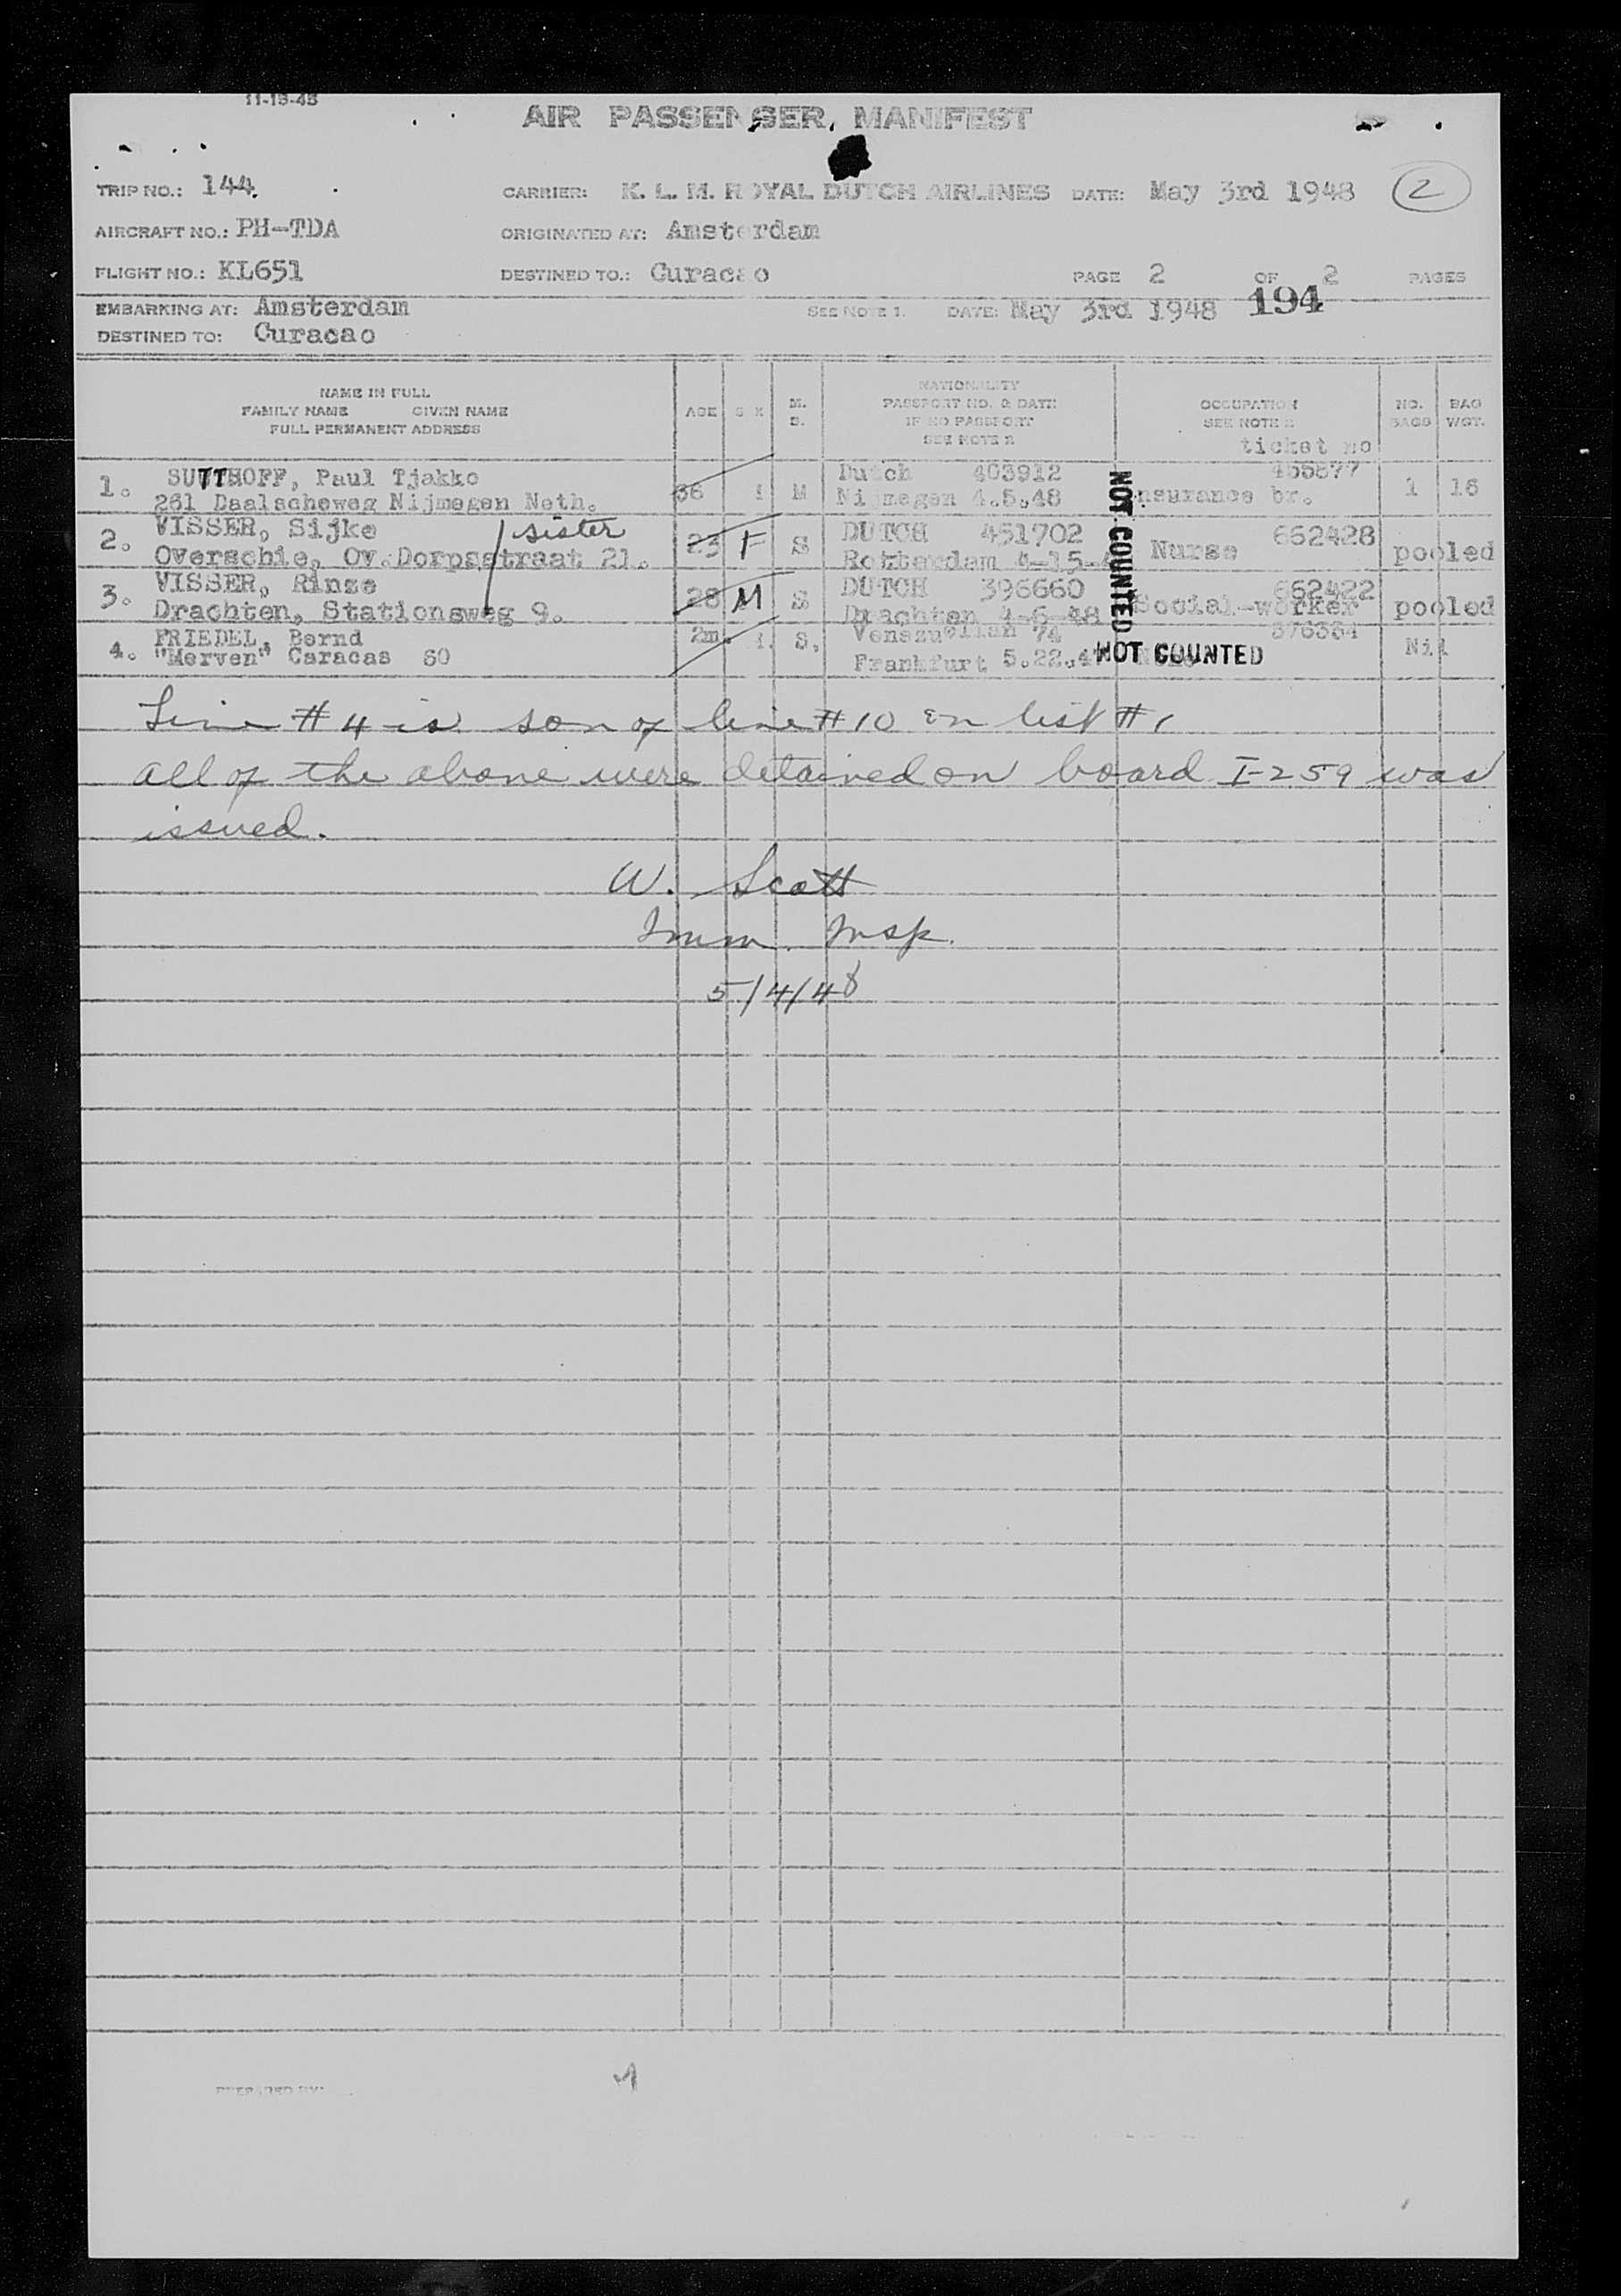 11-19-48
AIR PASSENGER MANIFEST
TRIP NO.: 144 CARRIER: K. L. M. ROYAL DUTCH AIRLINES DATE: May 3rd 1948 2
AIRCRAFT NO.: PH-TDA ORIGINATED AT: Amsterdam
FLIGHT NO.: KL651 DESTINED TO.: Curacao PAGE 2 OF 2 PAGES
194
EMBARKING AT: Amsterdam SEE NOTE 1. DATE: May 3rd 1948
DESTINED TO: Curacao
NAME IN FULL
FAMILY NAME GIVEN NAME
FULL PERMANENT ADDRESS
AGE
SEX
M.
S.
NATIONALITY
PASSPORT NO. & DATE
IF NO PASSPORT
SEE NOTE 2
OCCUPATION
SEE NOTE 2
ticket no
NO.
BAGS
BAG
WGT.
1. SUTTHOFF, Paul Tjakko 36 M Dutch 403912 1 16
261 Daalscheweg Nijmegen Neth. Nijmegen 4.5.48 Insurance br.
2. VISSER, Sijke sister 23 F S DUTCH 451702 Nurse 662428 pooled
Overschie, Ov.Dorpsstraat 21. Rotterdam 4-15-4
3. VISSER, Rinze 28 M S DUTCH 396660 662422 pooled
Drachten, Stationsweg 9. Drachten 4-6-48 Social-worker
4. FRIEDEL, Bernd 2m. S. Venezuelian 74 376364 Nil
"Merven" Caracas 60 Frankfurt 5.22.4
NOT COUNTED
NOT COUNTED
Line # 4 is son of line # 10 on list # 1
all of the above were detained on board I-259 was
issued.
W. Scott
Imm. Insp.
5/4/48
PREPARED BY: